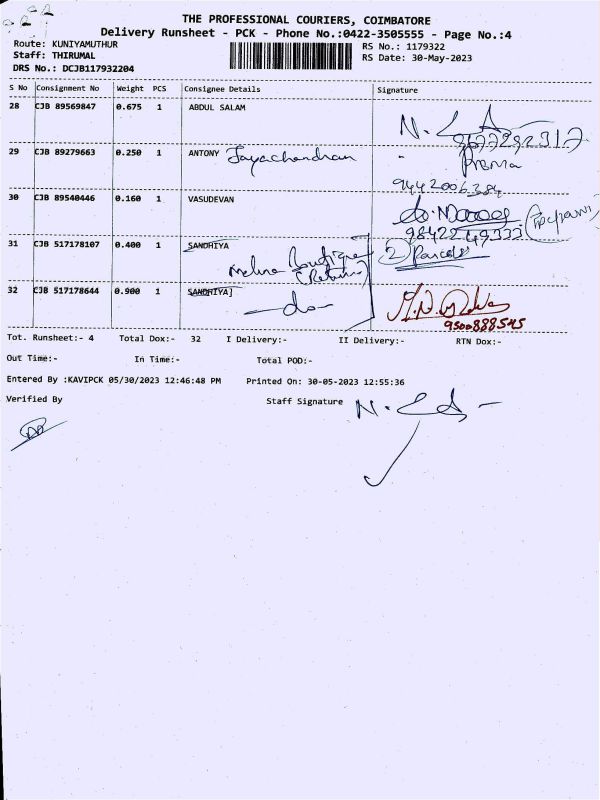 THE PROFESSIONAL COURIERS, COIMBATORE
Delivery Runsheet - PCK - Phone No.:0422-3505555 - Page No.:4
Route: KUNIYAMUTHUR
RS No.: 1179322
Staff: THIRUMAL
RS Date: 30-May-2023
DRS No.: DCJB117932204
S No Consignment No Weight PCS Consignee Details Signature
28 CJB 89569847 0.675 1 ABDUL SALAM
29 CJB 89279663 0.250 1 ANTONY Jayachandran
Prema
9442006384
30 CJB 89540446 0.160 1 VASUDEVAN
9842249333
31 CJB 517178107 0.400 1 SANDHIYA
(Return) 2 Parcels
32 CJB 517178644 0.900 1 SANDHIYA]
-do-
9500888545
Tot. Runsheet:- 4 Total Dox:- 32 I Delivery:- II Delivery:- RTN Dox:-
Out Time:- In Time:- Total POD:-
Entered By :KAVIPCK 05/30/2023 12:46:48 PM Printed On: 30-05-2023 12:55:36
Verified By Staff Signature